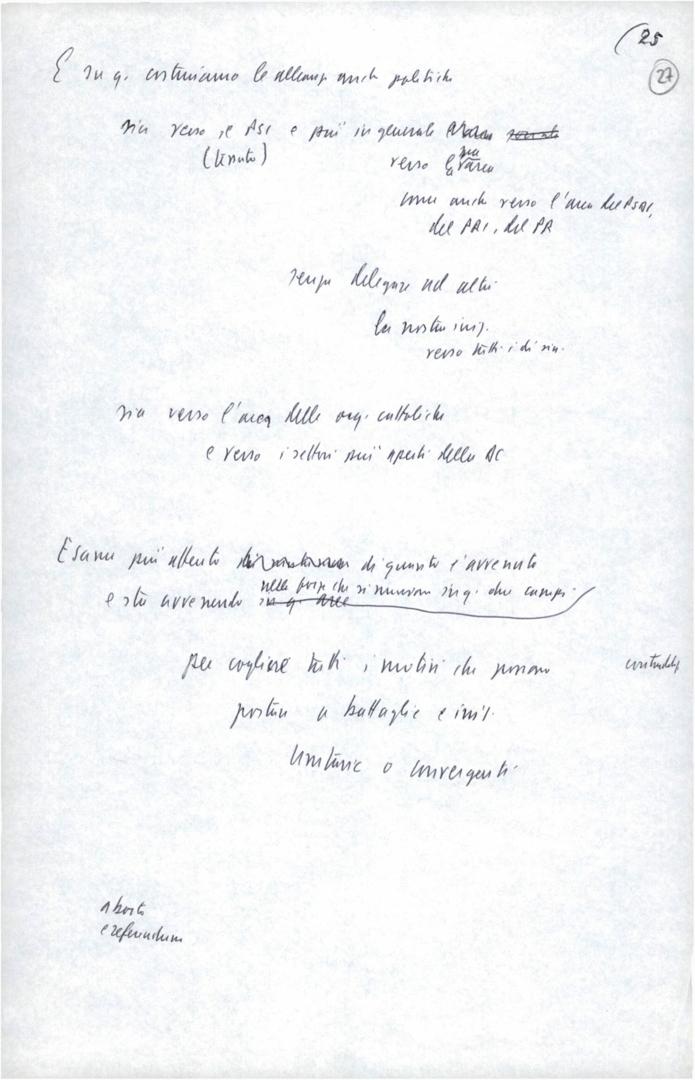 (25
27
E su q. costruiamo le alleanze anche politiche
sia verso il PSI e più in generale
(Unuto)
verso la sua area
come anche verso l'area del PSDI,
del PRI, del PR
senza delegare ad altri
la nostra iniz.
verso tutti i di sin.
sia verso l'area delle org. cattoliche
e verso i settori più aperti della DC
Esame più attento di quanto è avvenuto
nelle forze che si muovono in q. due campi
e sta avvenendo in q. aree
per cogliere tutti i motivi che possono
portare a battaglie e iniz.
unitarie o convergenti
aborto
e referendum